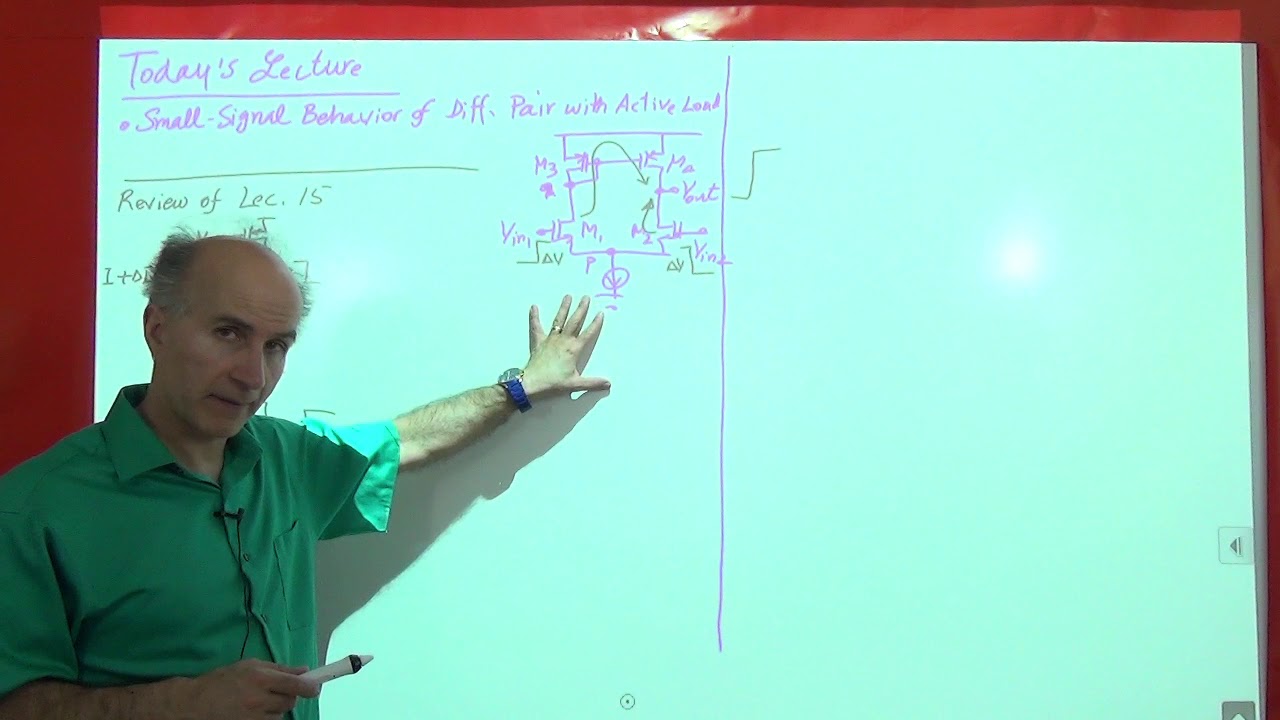 Today's Lecture
• Small-Signal Behavior of Diff. Pair with Active Load
Review of Lec. 15
M3
Vout
Vin1
M1
M2
ΔV
ΔV
P